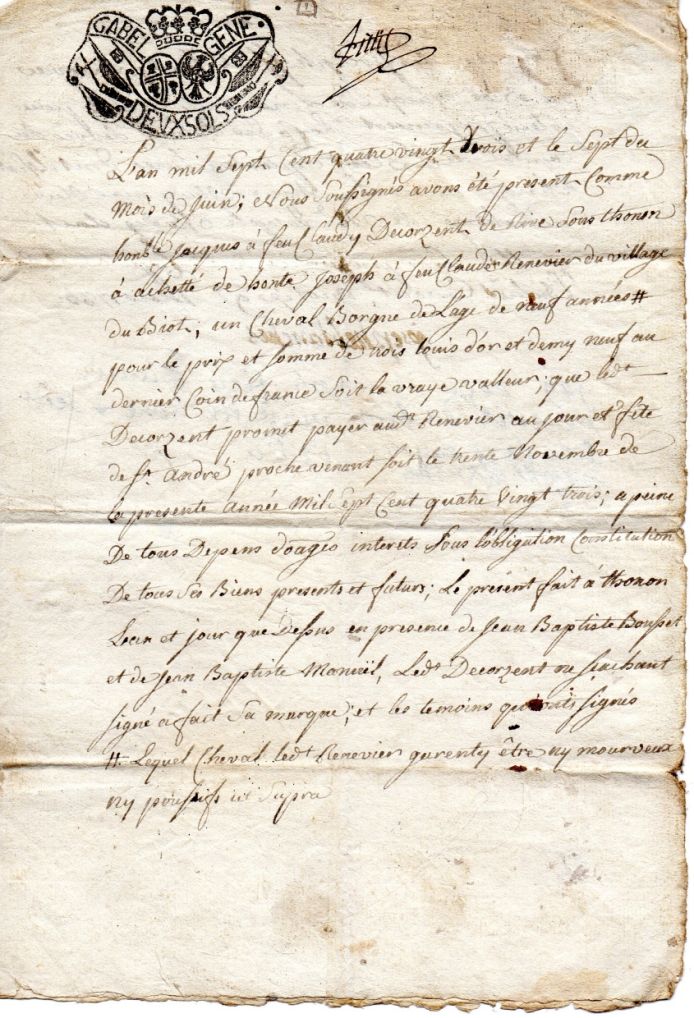 GABEL GENE
DEUX SOLS
L'an mil Sept Cent quatre vingt trois et le Sept du
Mois de Juin, Nous Soussignés avons été present Comme
honble jacques à feu Claudy Decorzent de Rive Sous thonon
à achetté de honble Joseph à feu Claude Renevier du village
du Biot, un Cheval Borgne de l'age de neuf années #
pour le prix et somme de trois louis d'or et demy neuf au
dernier Coin de france Soit la vraye valleur; que ledt
Decorzent promet payer audt Renevier au jour et fête
de St André proche venant soit le trente Novembre de
la presente année Mil Sept Cent quatre Vingt trois; a peine
De tous Depens domages interets Sous l'obligation Constitution
De tous Ses Biens presents et futurs; Le présent fait à thonon
L'an et jour que Dessus en presence de Jean Baptiste Bousset
et de Jean Baptiste, Ledt Decorzent ne scachant
signé à fait Sa marque, et les temoins qui ont signés
# Lequel Cheval ledt Renevier garenty être ny mourveux
ny poussifs ut Supra